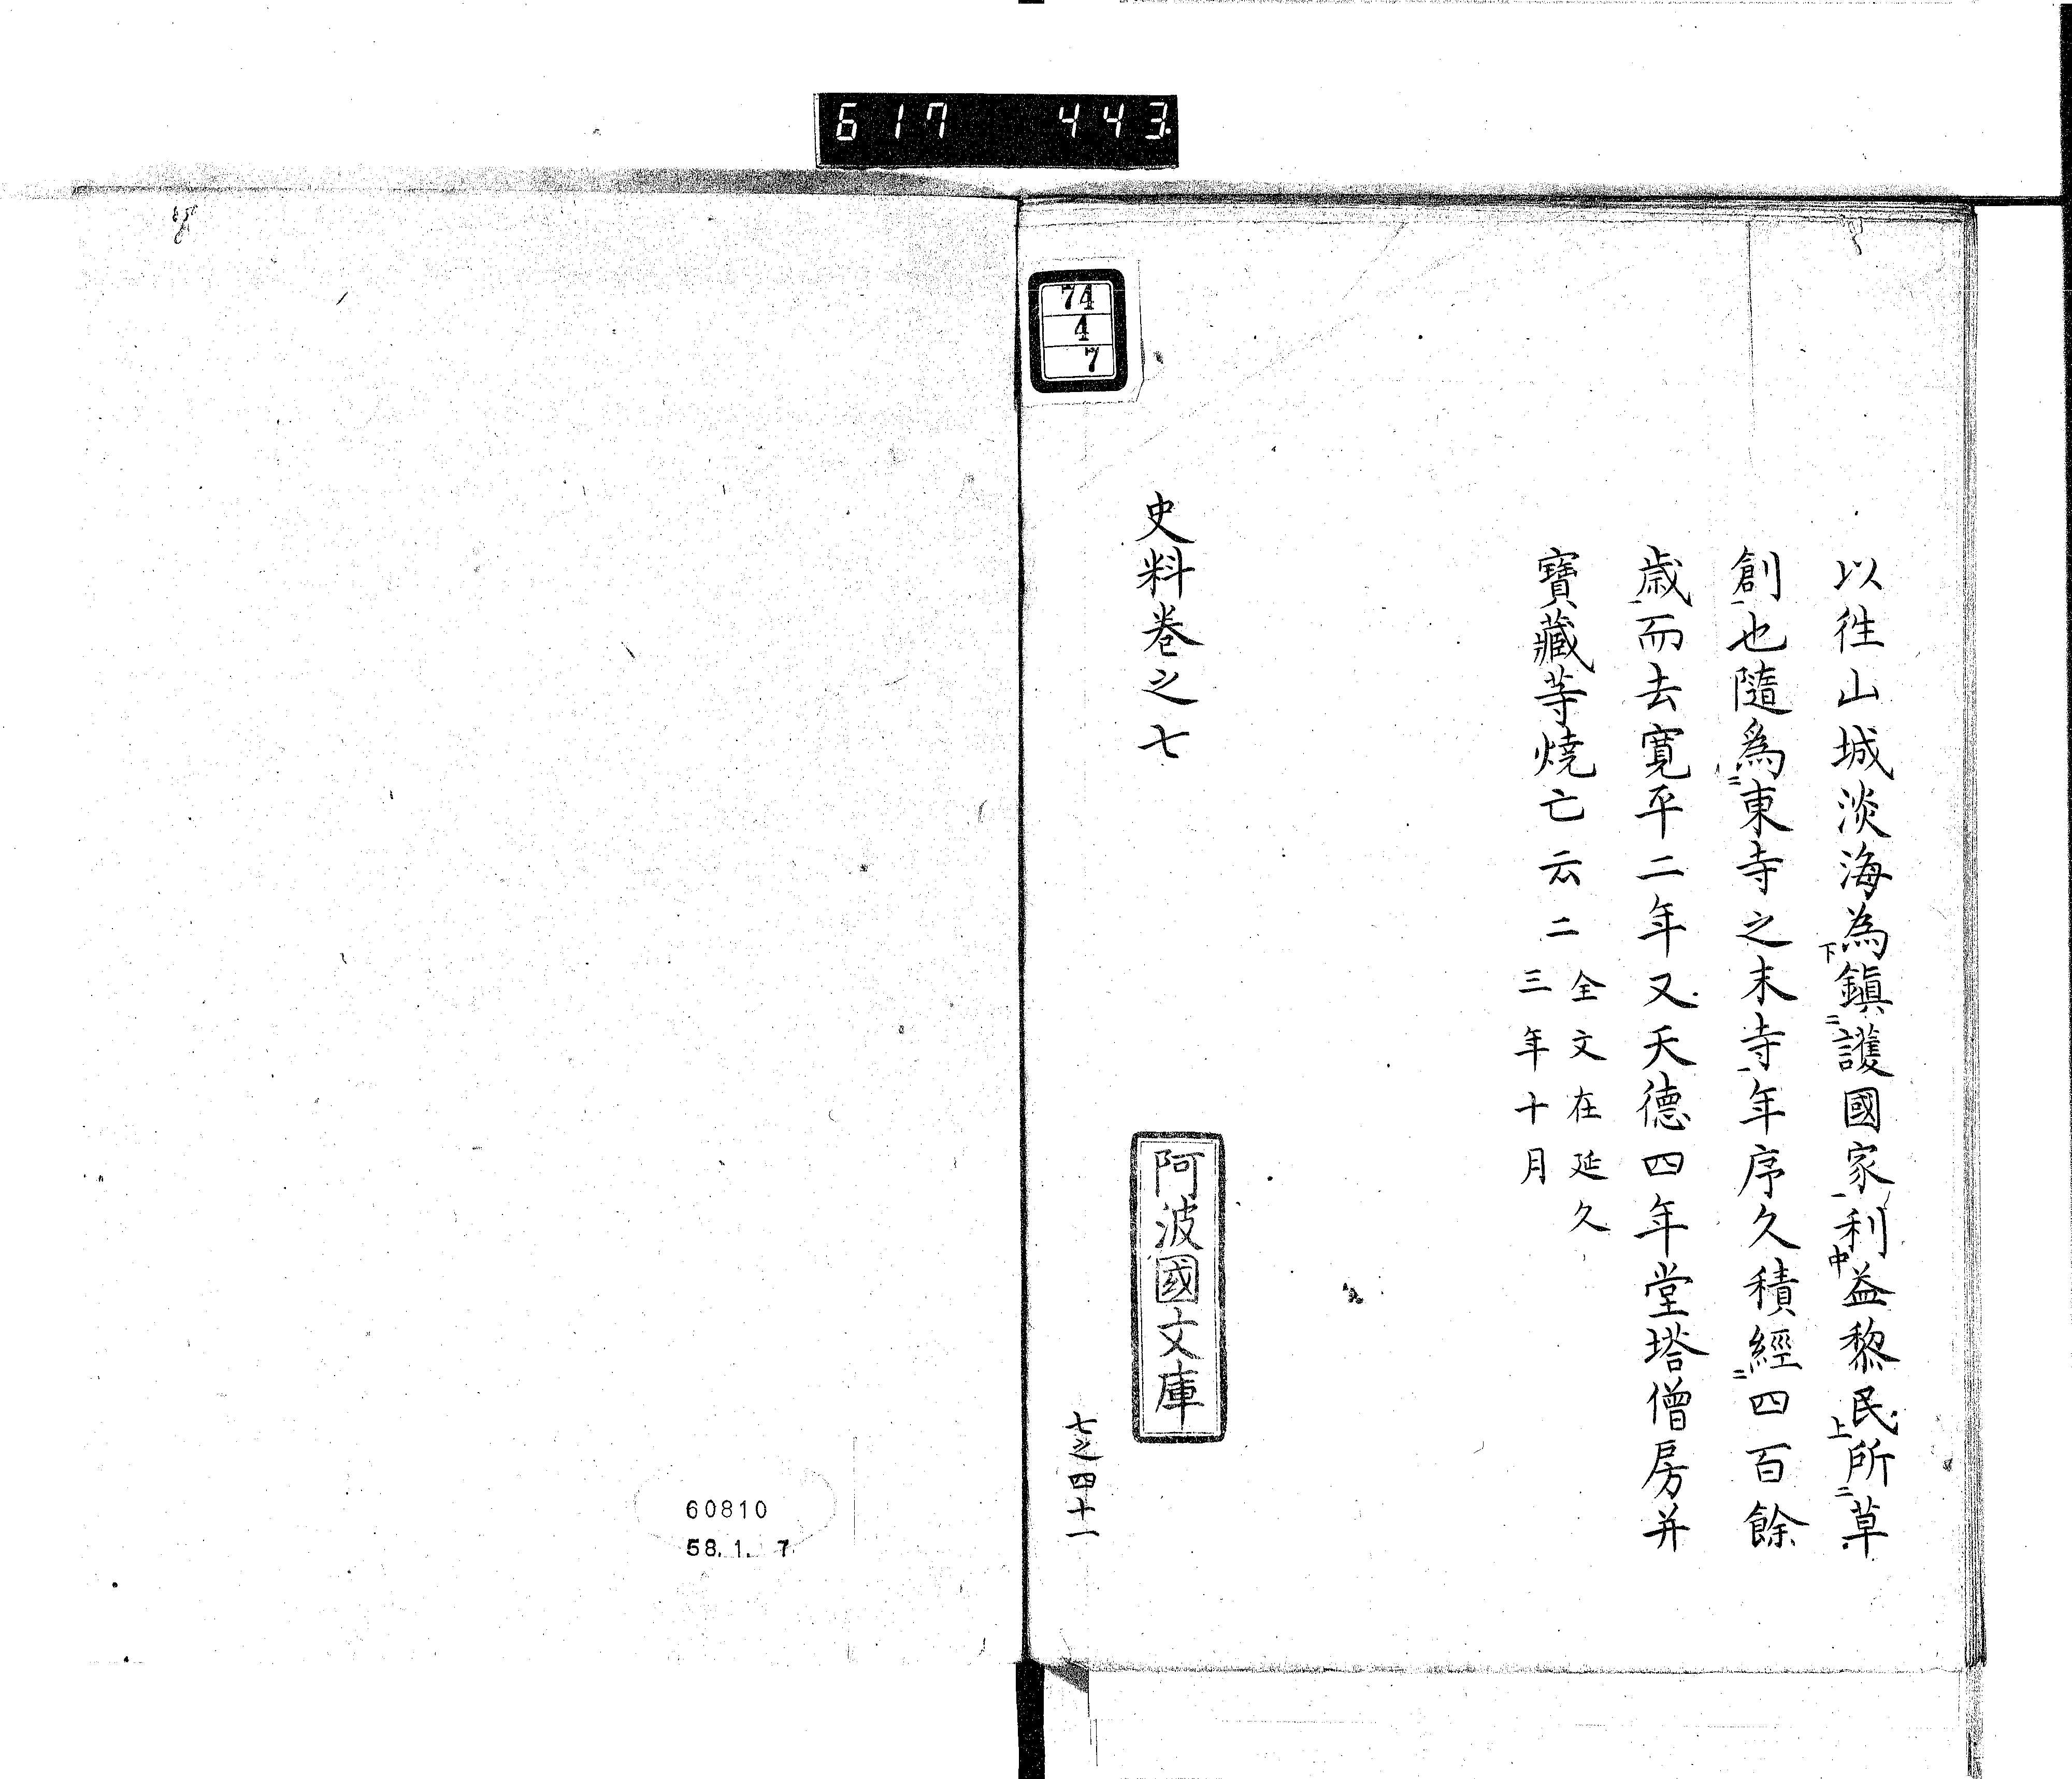 617 443
74
4
7
以徃山城淡海為下鎭二護國家一利中益黎民上所二草
創一也隨爲二東寺之末寺一年序久積經二四百餘
歳一而去寛平二年又天德四年堂塔僧房并
寶藏等燒亡云二
全文在延久
三年十月
史料巻之七
阿波國文庫
七之四十一
60810
58.1.7